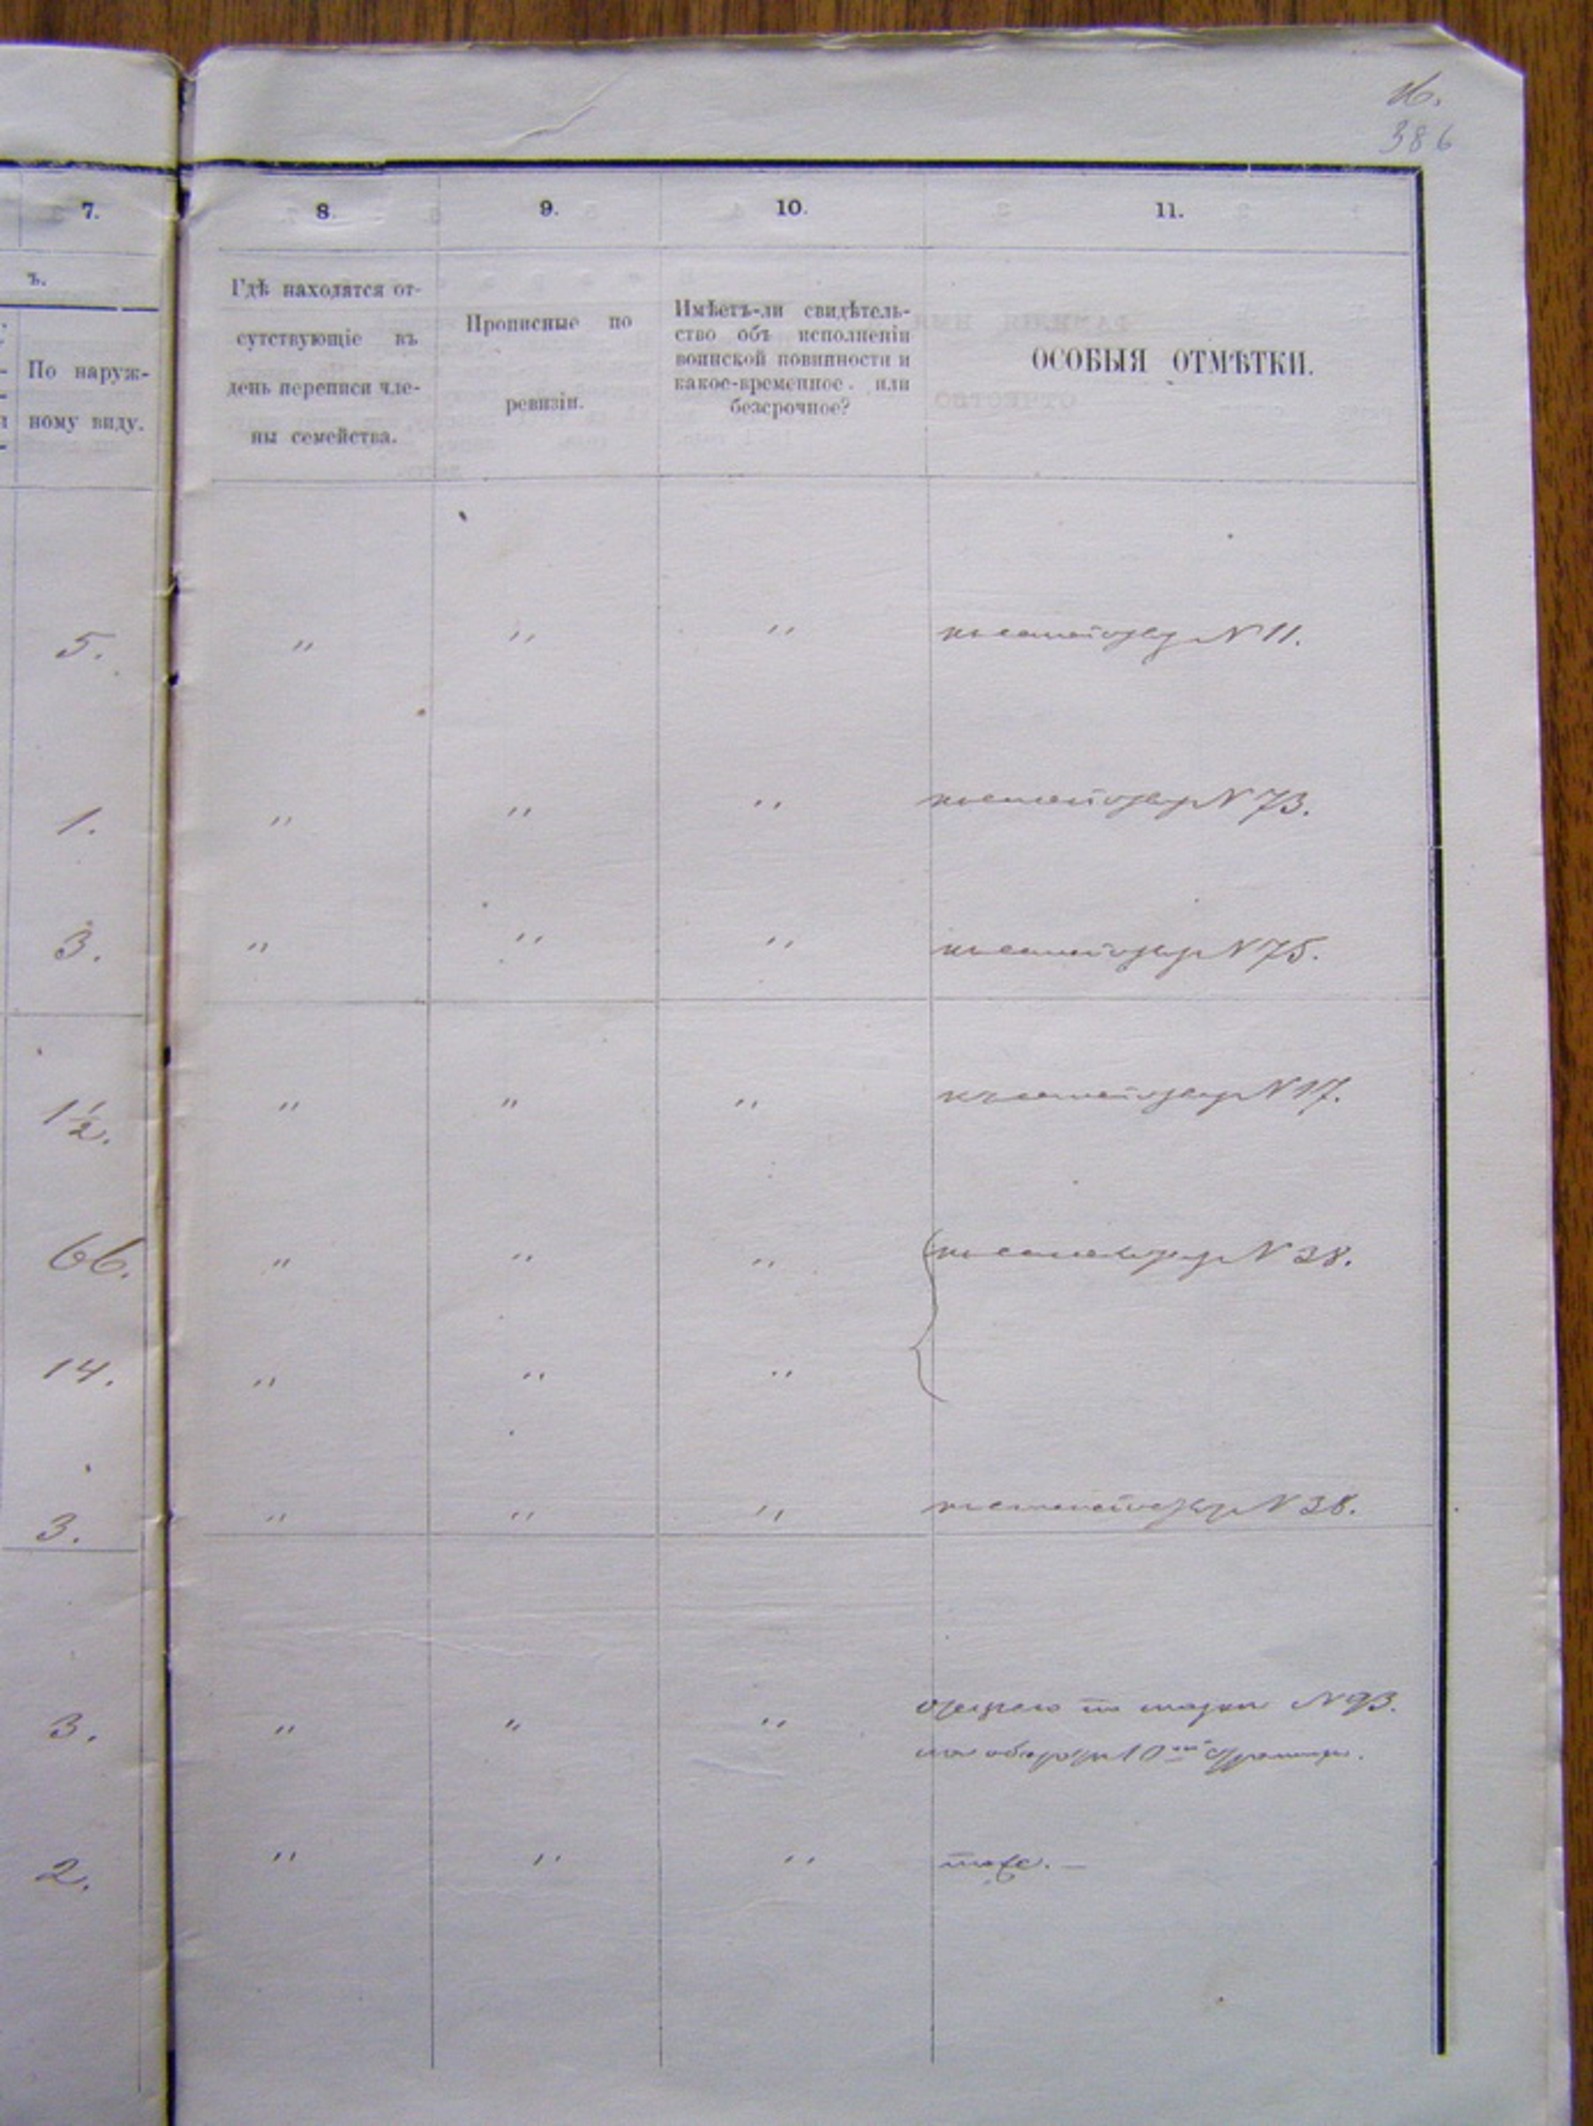 16.
386
7.
8.
9.
10.
11.
ъ.
По наруж-
ному виду.
Гдѣ находятся от-
сутствующіе въ
день переписи чле-
ны семейства.
Прописные по
ревизіи.
Имѣетъ-ли свидѣтель-
ство объ исполненіи
воинской повинности и
какое-временное или
безсрочное?
ОСОБЫЯ ОТМѢТКИ.
5. " " " N 11.
1. " " " N 73.
3. " " " N 75.
1½. " " " N 17.
66. " " " N 38.
14. " " "
3. " " " N 38.
3. " " " N 93.
на 10
2. " " " тоже. —